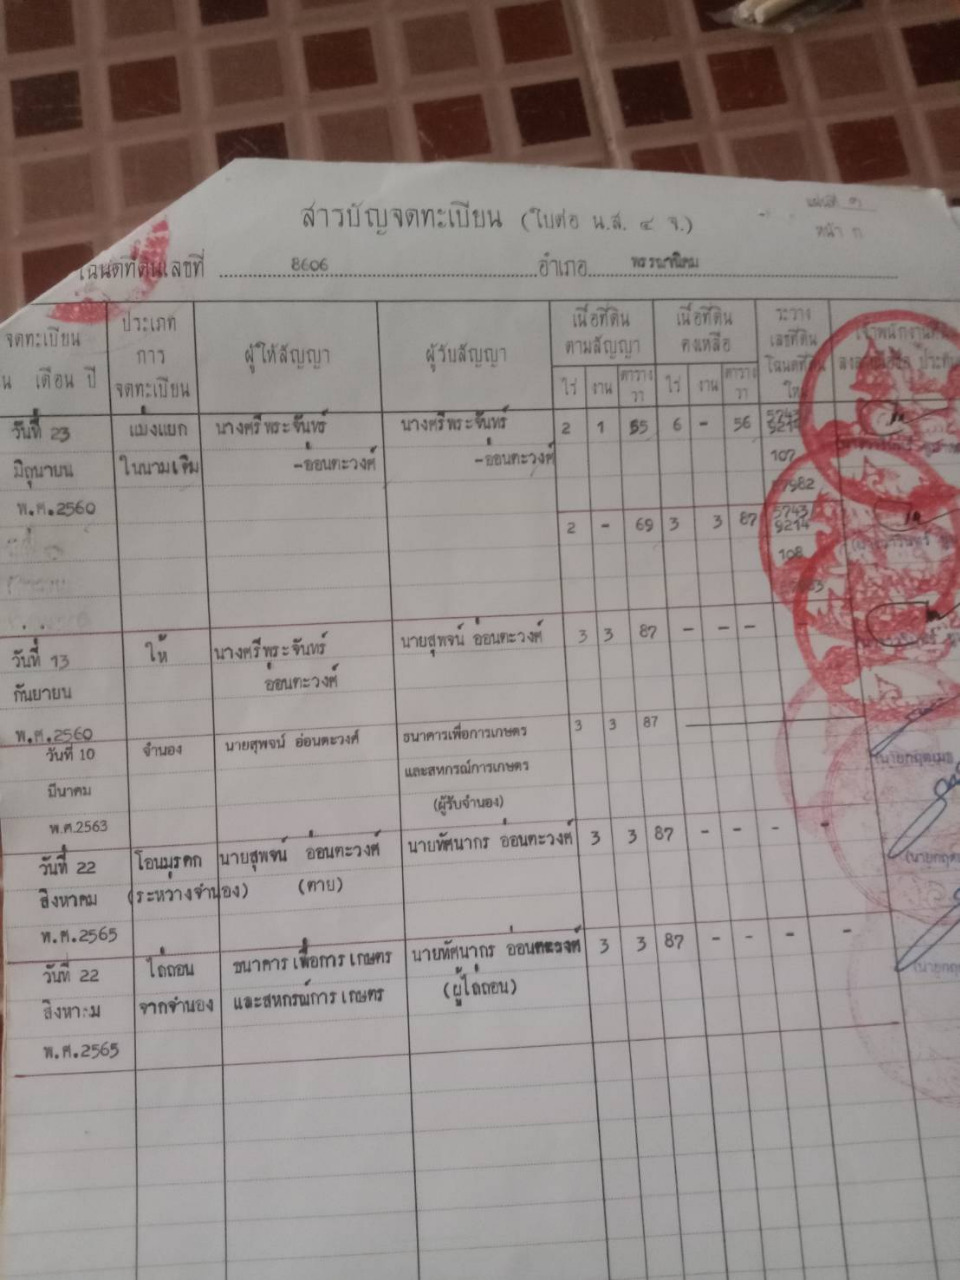 แผ่นที่ ๓
สารบัญจดทะเบียน (ใบต่อ น.ส. ๔ จ.)
หน้า ก
โฉนดที่ดินเลขที่ 8606 อำเภอ พรรณานิคม
จดทะเบียน
เดือน ปี
ประเภท
การ
จดทะเบียน
ผู้ให้สัญญา
ผู้รับสัญญา
เนื้อที่ดิน
ตามสัญญา
ไร่ งาน ตาราง
วา
เนื้อที่ดิน
คงเหลือ
ไร่ งาน ตาราง
วา
ระวาง
เลขที่ดิน
โฉนดที่ดิน
ใหม่
เจ้าพนักงานที่ดิน
วันที่ 23 แบ่งแยก นางศรีพระจันทร์ นางศรีพระจันทร์ 2 1 55 6 - 56 5743
9214
มิถุนายน ในนามเดิม -อ่อนตะวงศ์ -อ่อนตะวงศ์ 107
พ.ศ.2560
2 - 69 3 3 87 5743/
9214
108
วันที่ 13 ให้ นางศรีพระจันทร์ นายสุพจน์ อ่อนตะวงศ์ 3 3 87 - - -
กันยายน อ่อนตะวงศ์
พ.ศ.2560
วันที่ 10 จำนอง นายสุพจน์ อ่อนตะวงศ์ ธนาคารเพื่อการเกษตร 3 3 87
มีนาคม และสหกรณ์การเกษตร
พ.ศ.2563 (ผู้รับจำนอง)
วันที่ 22 โอนมรดก นายสุพจน์ อ่อนตะวงศ์ นายทัศนากร อ่อนตะวงศ์ 3 3 87 - - - -
สิงหาคม (ระหว่างจำนอง) (ตาย)
พ.ศ.2565
วันที่ 22 ไถ่ถอน ธนาคารเพื่อการเกษตร นายทัศนากร อ่อนตะวงศ์ 3 3 87 - - - -
สิงหาคม จากจำนอง และสหกรณ์การเกษตร (ผู้ไถ่ถอน)
พ.ศ.2565